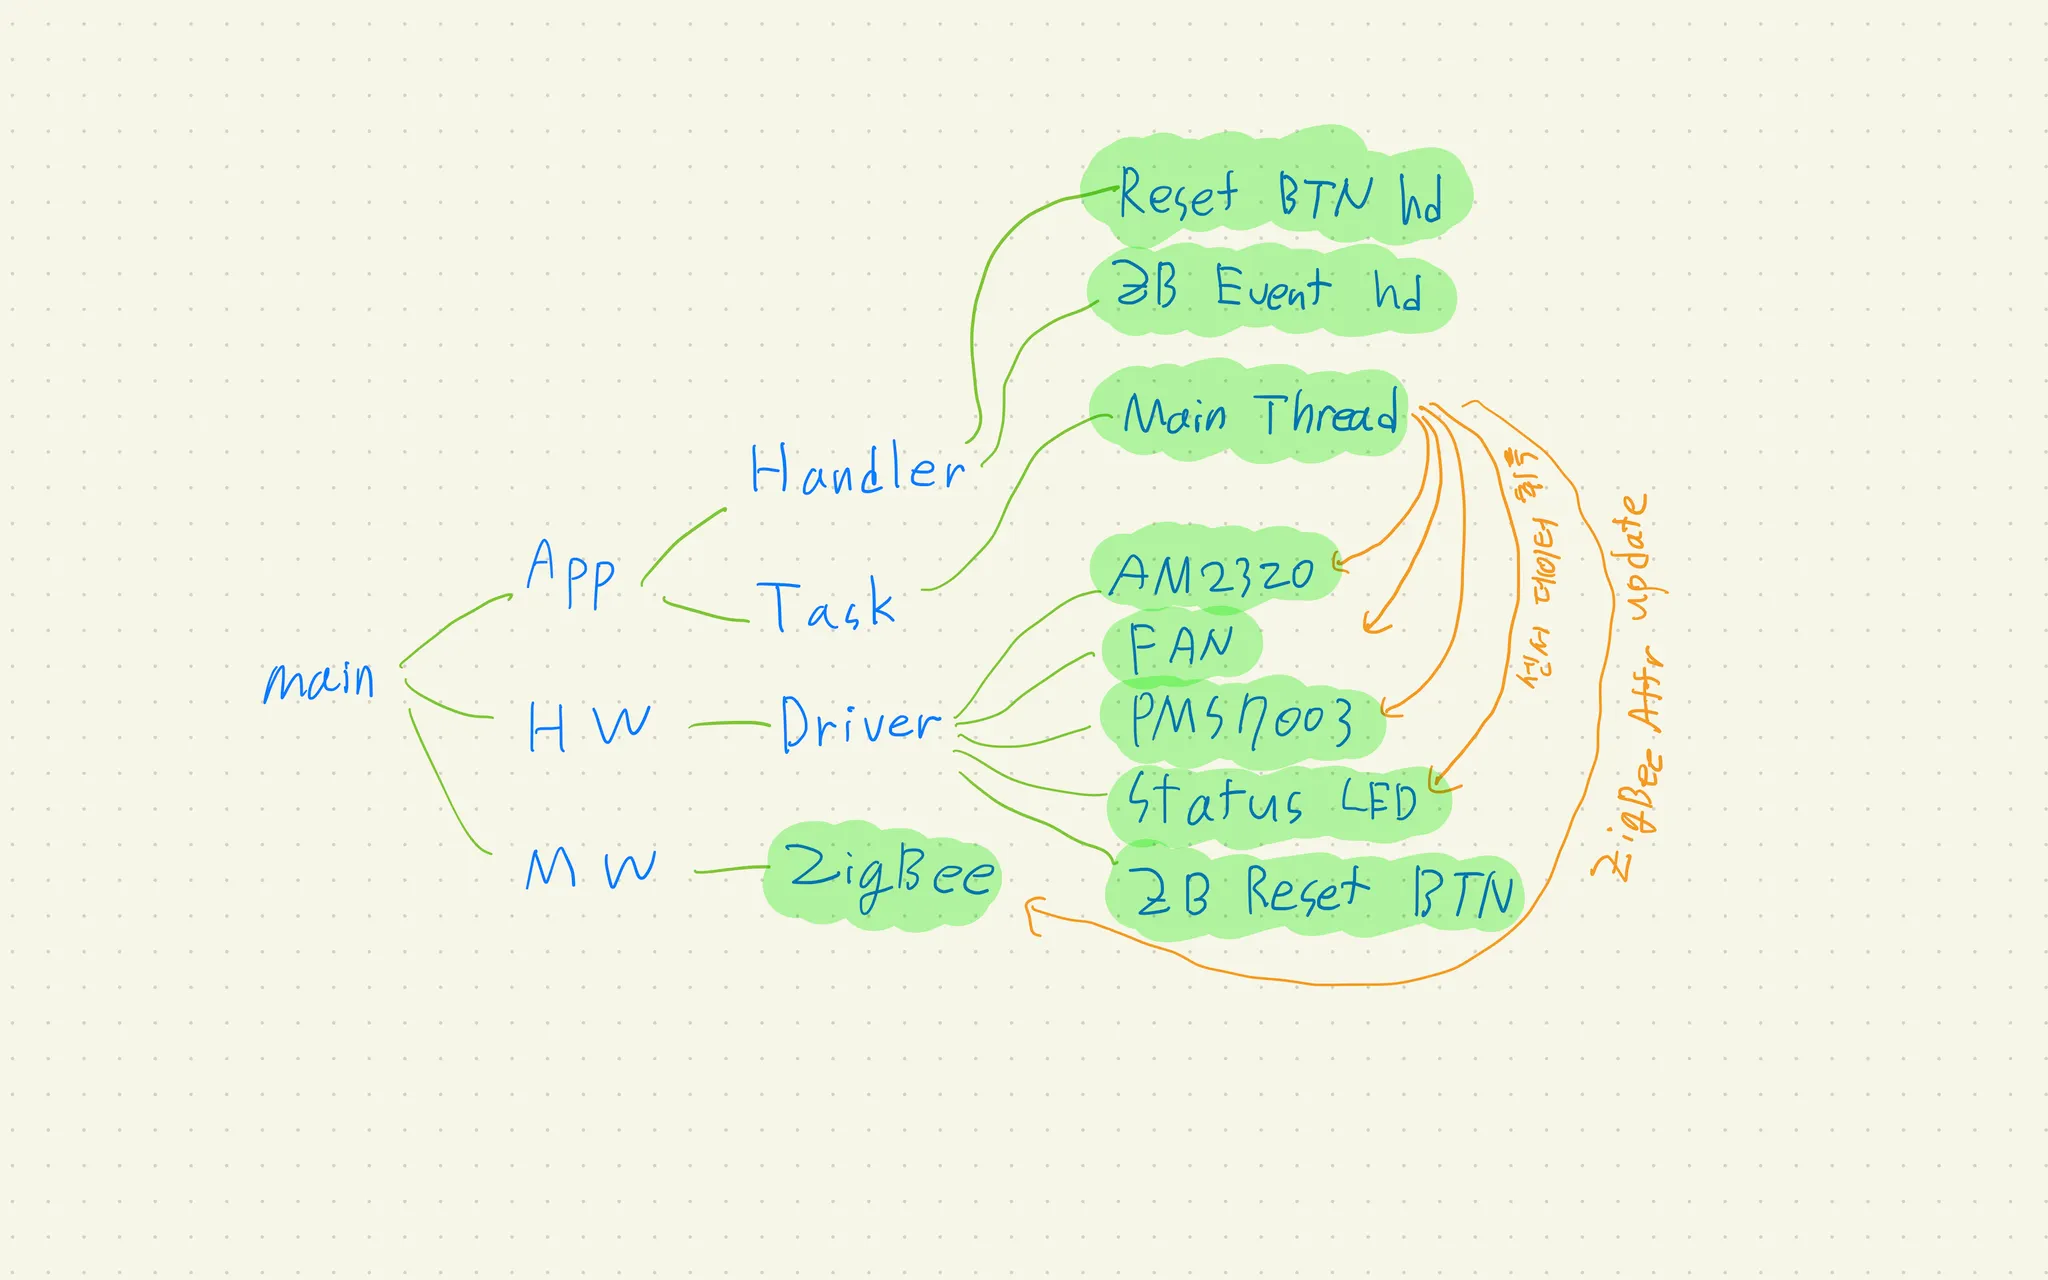 Reset BTN hd
ZB Event hd
Main Thread
Handler
App
Task
AM2320
FAN
main
HW
Driver
PMS7003
Status LED
MW
ZigBee
ZB Reset BTN
센서 데이터 획득
ZigBee Attr update